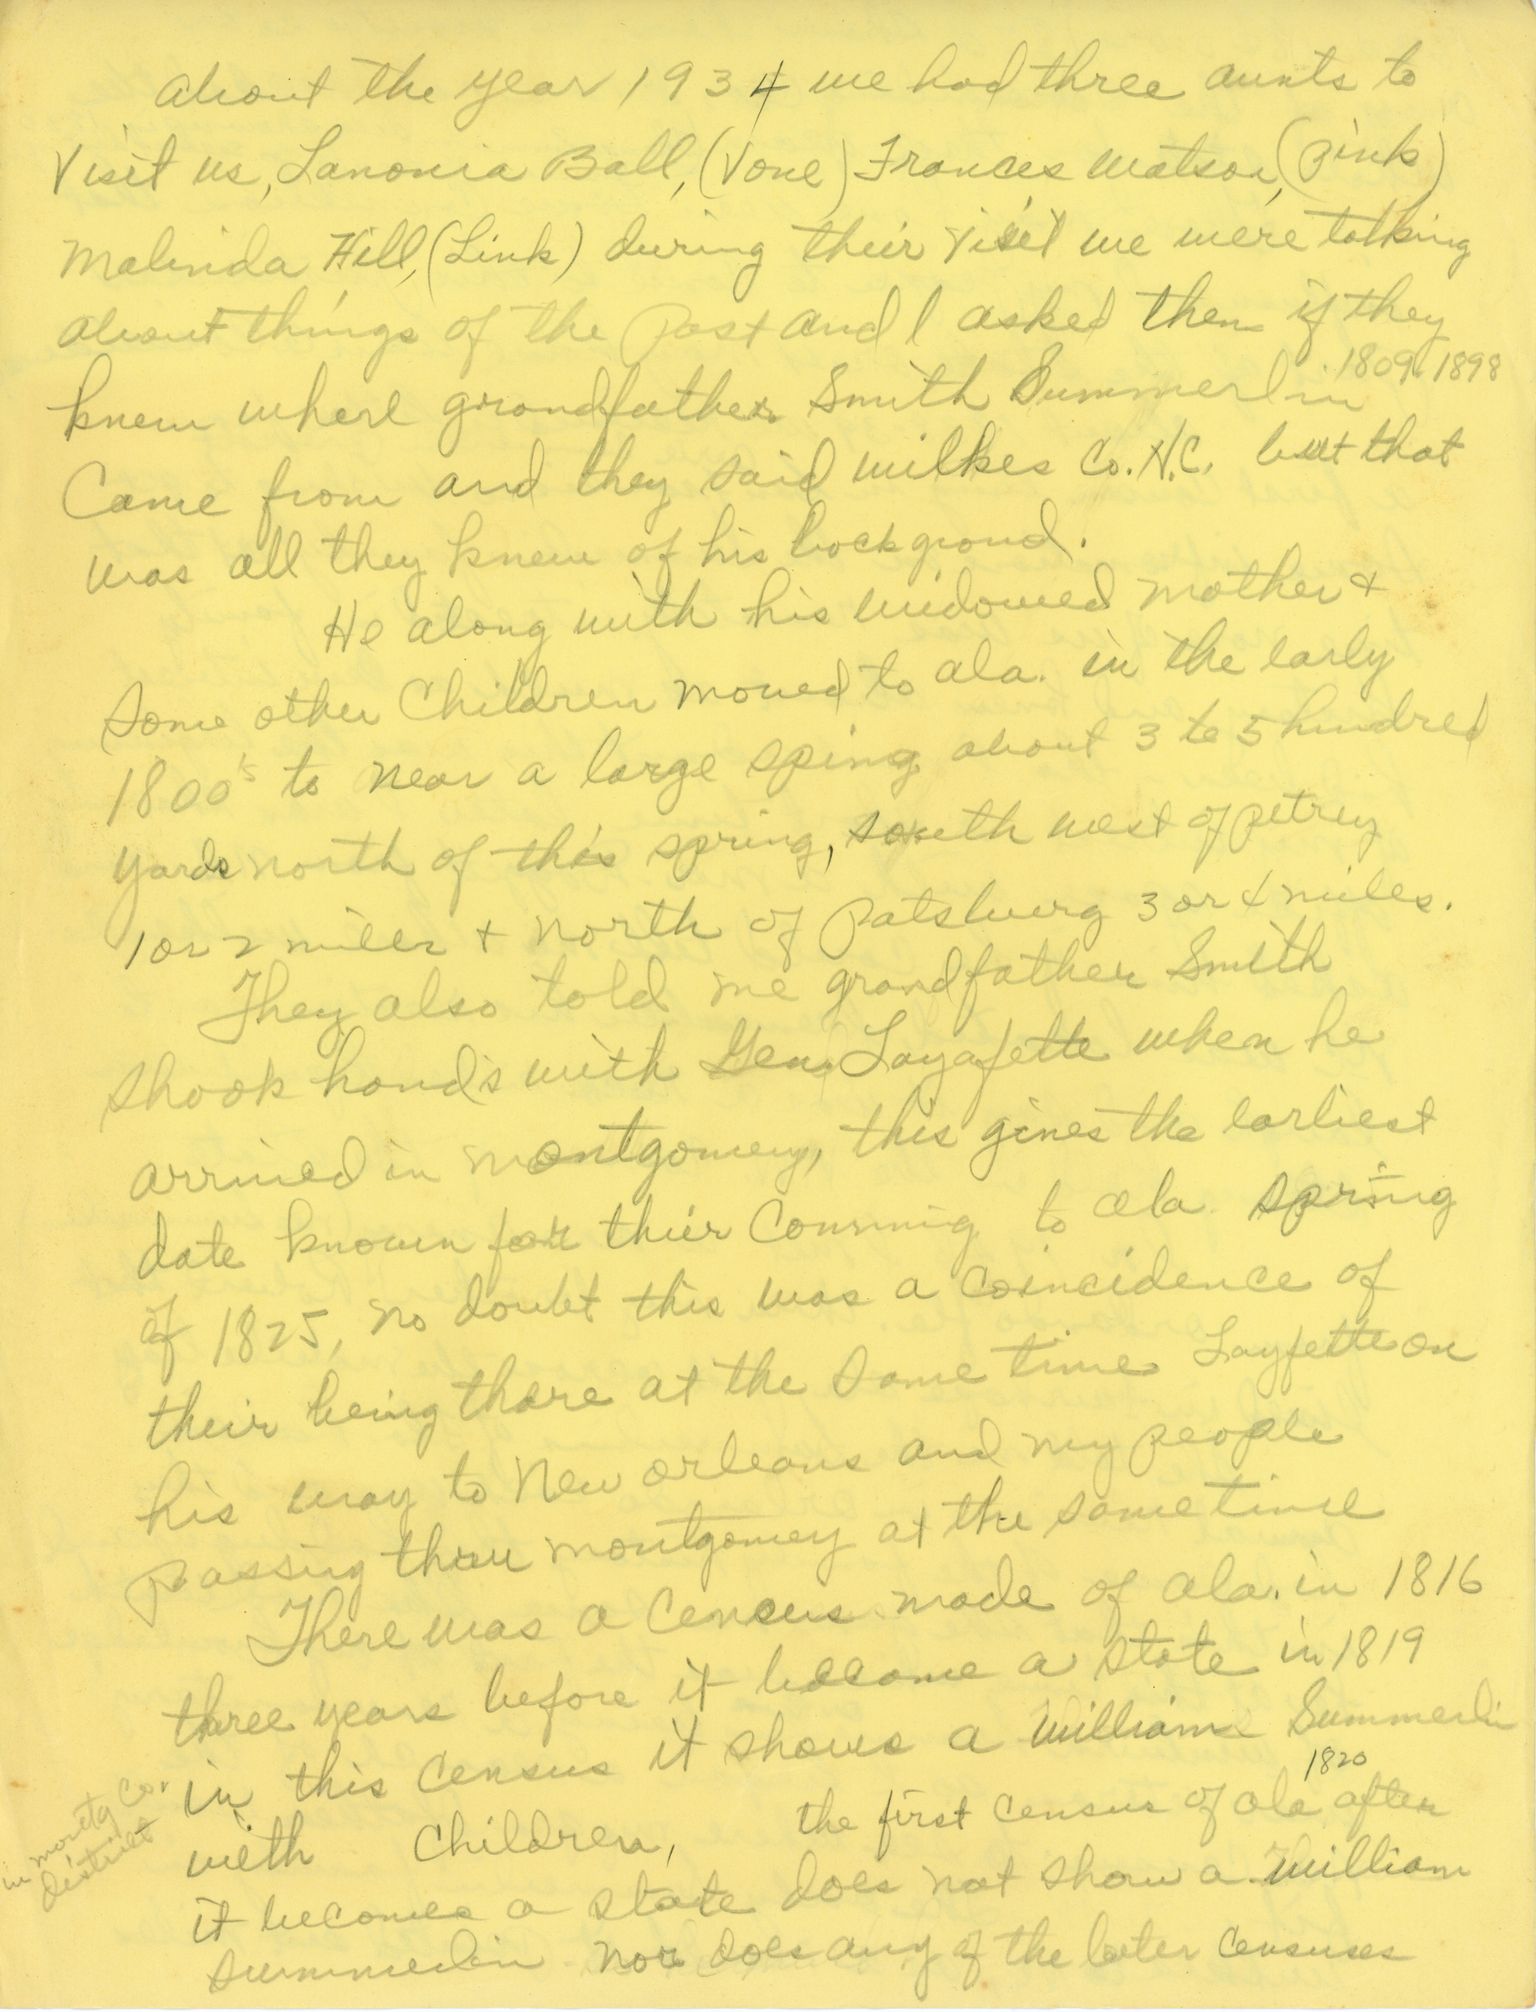 about the year 1934 we had three aunts to
visit us, Lanonia Ball, (Vone) Frances Watson, (Pink)
Malinda Hill, (Link) during their visit we were talking
about things of the past and I asked them if they
knew where grandfather Smith Summerlin 1809-1898
came from and they said Wilkes Co. N.C. but that
was all they knew of his backgroud.
He along with his widowed mother +
some other children moved to ala. in the early
1800's to near a large sping about 3 to 5 hundred
yards north of this spring, south west of petrey
1 or 2 miles + north of Patsburg 3 or 4 miles.
They also told me grandfather Smith
shook hands with Gen. Layafette when he
arrived in montgomery, this gives the earliest
date known for thier comming to ala. spring
of 1825, no doubt this was a coincidence of
their being there at the same time Layfette on
his way to New orleans and my people
passing thru montgomery at the same time
There was a census made of ala. in 1816
three years before it became a state in 1819
in this census it shows a William Summerlin
with children, the first census of ala 1820 after
in district
it becomes a state does not show a William
Summerlin nor does any of the later censuses